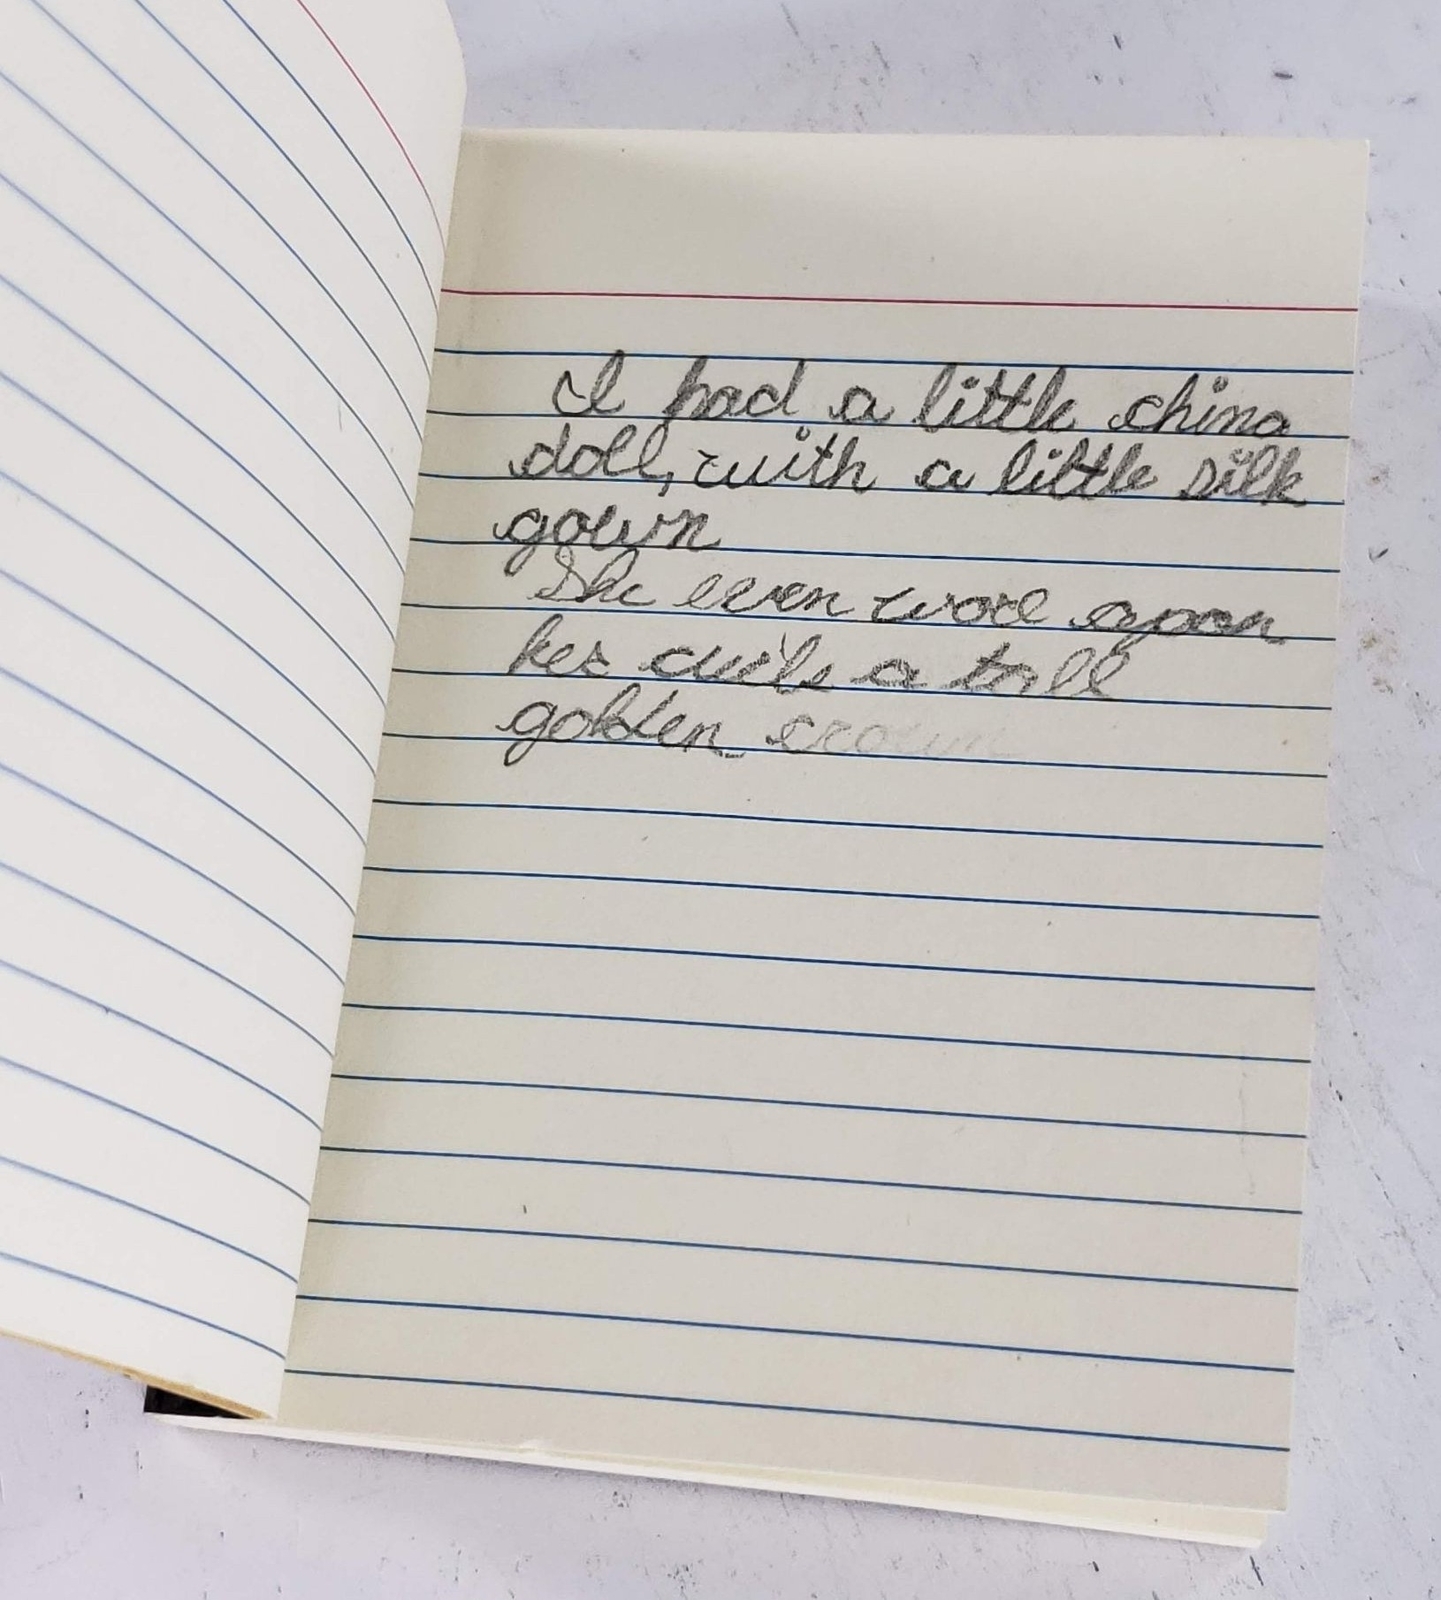 I had a little china
doll, with a little silk
gown
She even wore upon
her curls a tall
golden crown